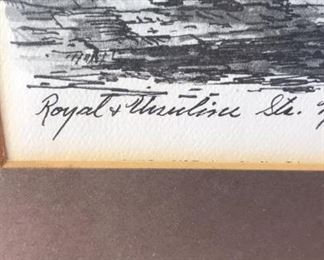 Royal & Ursuline Sts.